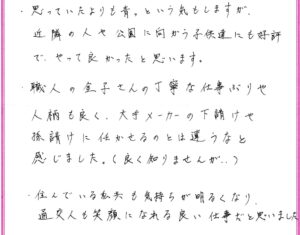 ・思っていたよりも青。という気もしますが、
近隣の人や公園に向かう子供達にも好評
で、やって良かったと思います。
・職人の金子さんの丁寧な仕事ぶりや
人柄も良く、大手メーカーの下請けや
孫請けに任かせるのとは違うなと
感じました。(良く知りませんが..)
・住んでいる私共も気持ちが明るくなり、
通交人も笑顔になれる良い仕事だと思いました